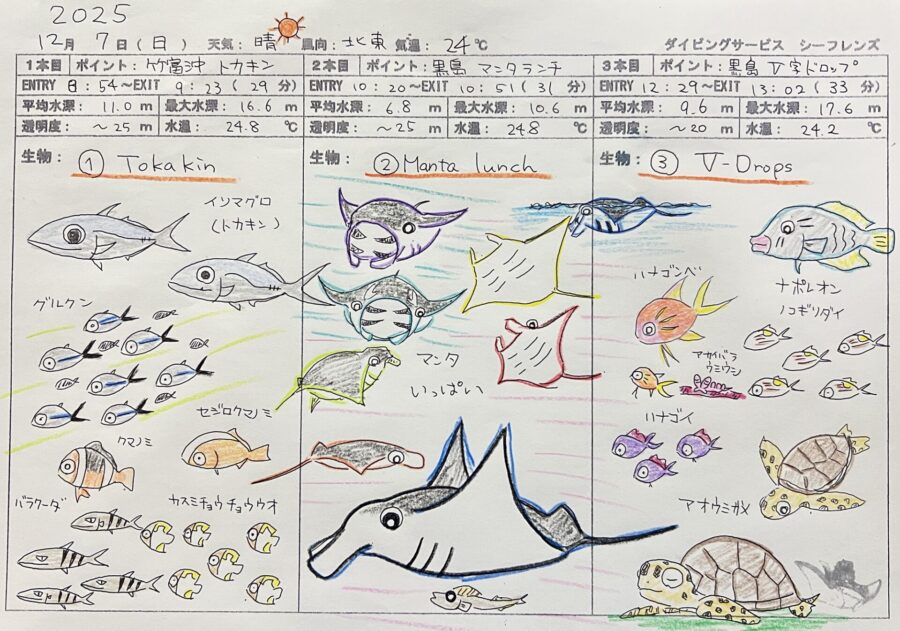 2025
12月 7日(日) 天気: 晴 風向: 北東 気温: 24℃ ダイビングサービス シーフレンズ
1本目 ポイント: 竹富沖 トカキン
ENTRY 8:54~EXIT 9:23(29分)
平均水深: 11.0 m 最大水深: 16.6 m
透明度: ~25 m 水温: 24.8 ℃
生物: ① Tokakin
イソマグロ
(トカキン)
グルクン
セジロクマノミ
クマノミ
バラクーダ
カスミチョウチョウウオ
2本目 ポイント: 黒島 マンタランチ
ENTRY 10:20~EXIT 10:51(31分)
平均水深: 6.8 m 最大水深: 10.6 m
透明度: ~25 m 水温: 24.8 ℃
生物: ② Manta lunch
マンタ
いっぱい
3本目 ポイント: 黒島 V字ドロップ
ENTRY 12:29~EXIT 13:02(33分)
平均水深: 9.6 m 最大水深: 17.6 m
透明度: ~20 m 水温: 24.2 ℃
生物: ③ V-Drops
ナポレオン
ハナゴンベ
ノコギリダイ
ハナゴイ
アオウミガメ